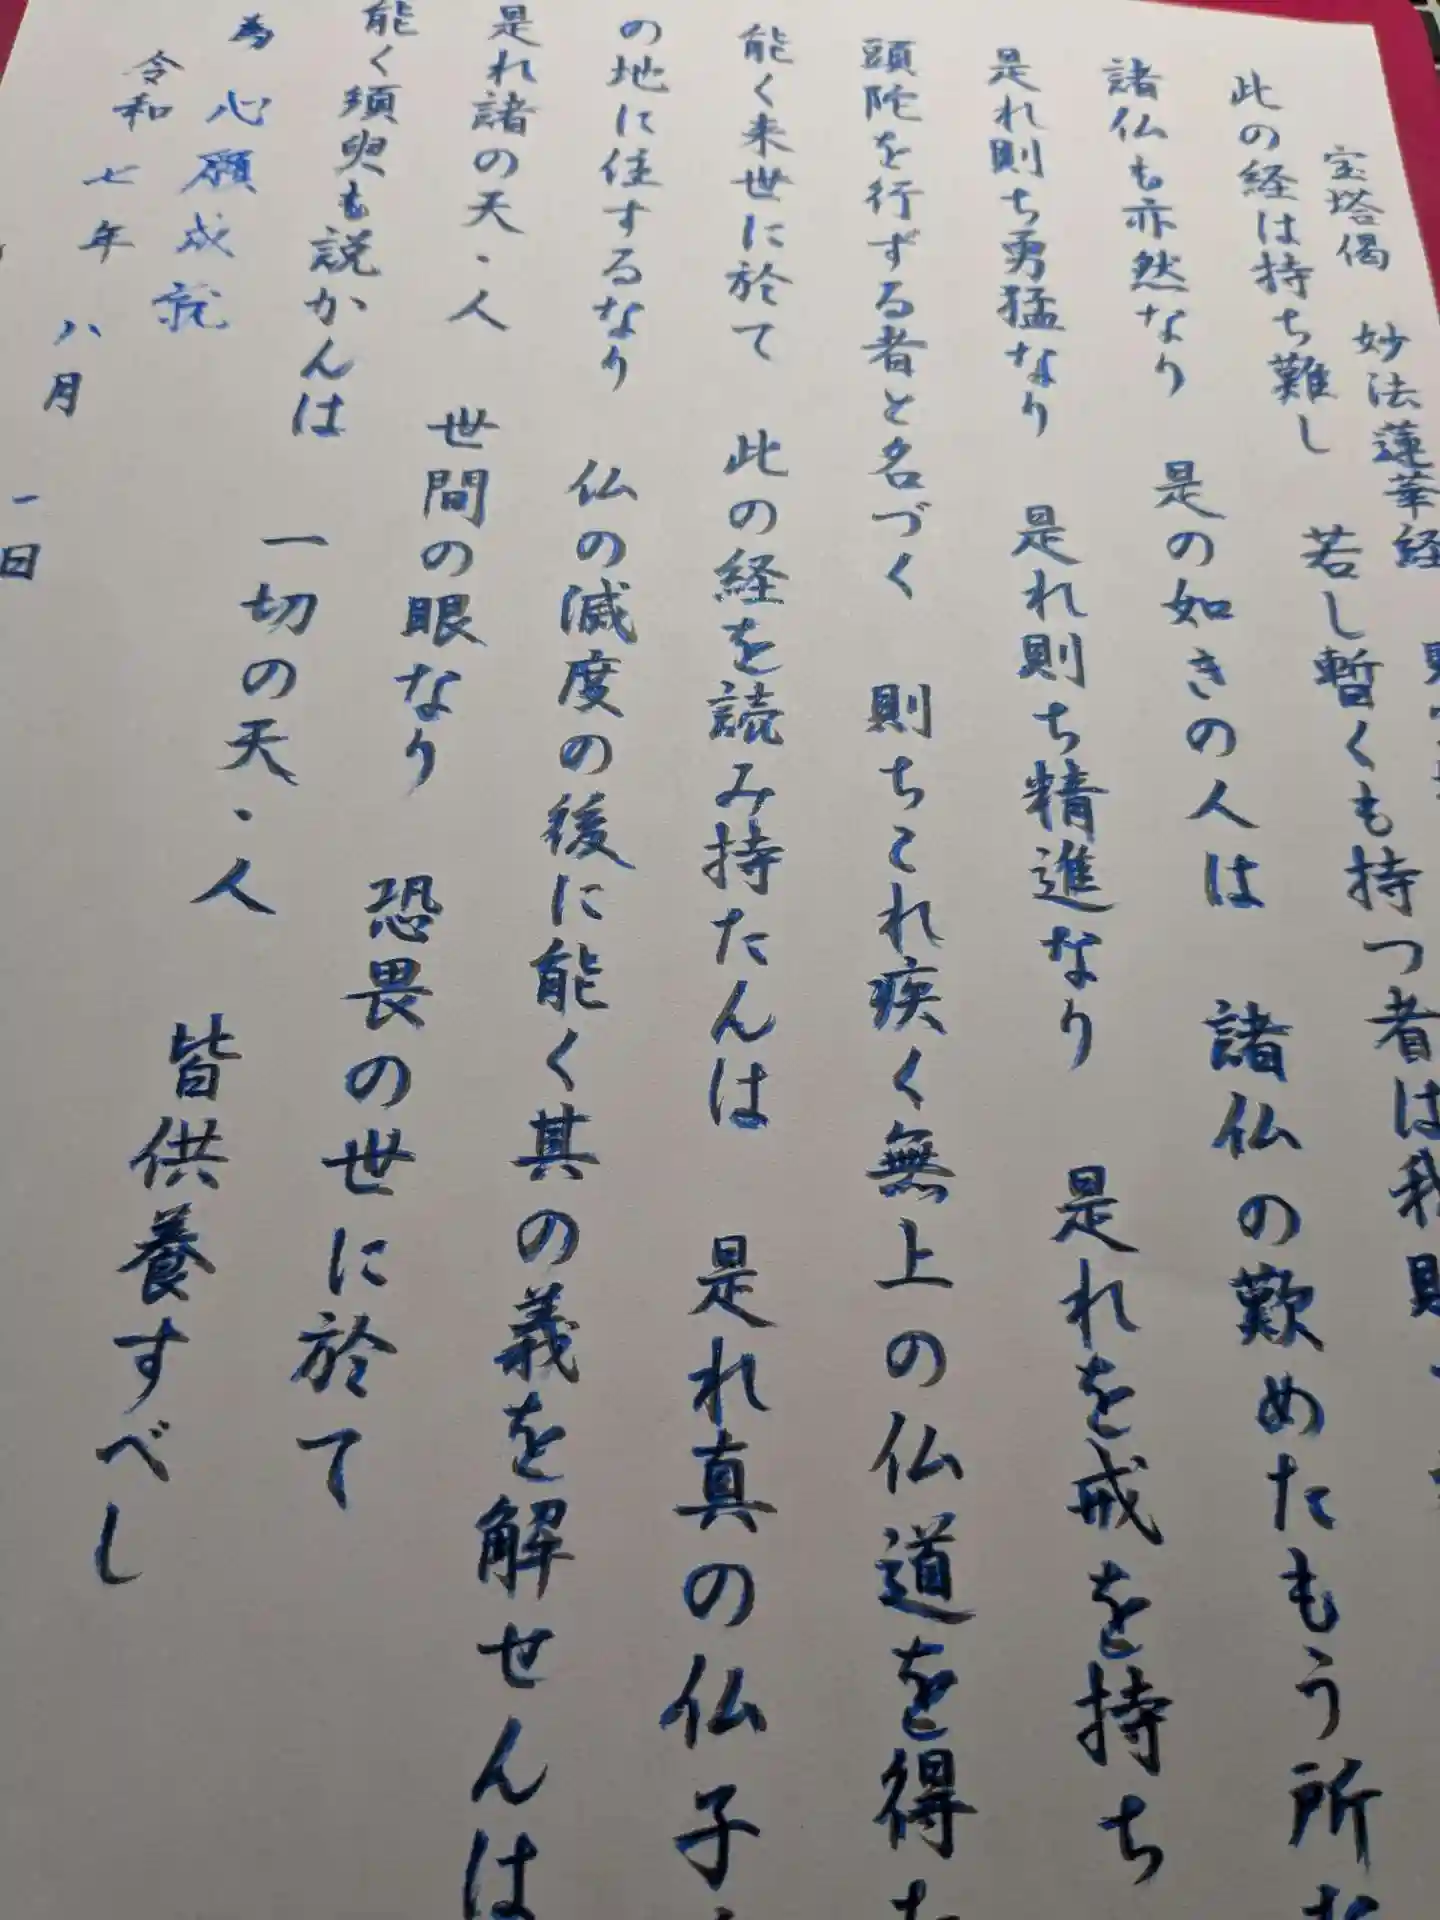 宝塔偈 妙法蓮華経
此の経は持ち難し 若し暫くも持つ者は我
諸仏も亦然なり 是の如きの人は 諸仏の歎めたもう所
是れ則ち勇猛なり 是れ則ち精進なり 是れを戒を持ち
頭陀を行ずる者と名づく 則ちこれ疾く無上の仏道を得た
能く来世に於て 此の経を読み持たんは 是れ真の仏子
の地に住するなり 仏の滅度の後に能く其の義を解せんは
是れ諸の天・人 世間の眼なり 恐畏の世に於て
能く須臾も説かんは 一切の天・人 皆供養すべし
為 心願成就
令和 七年 八月 一日